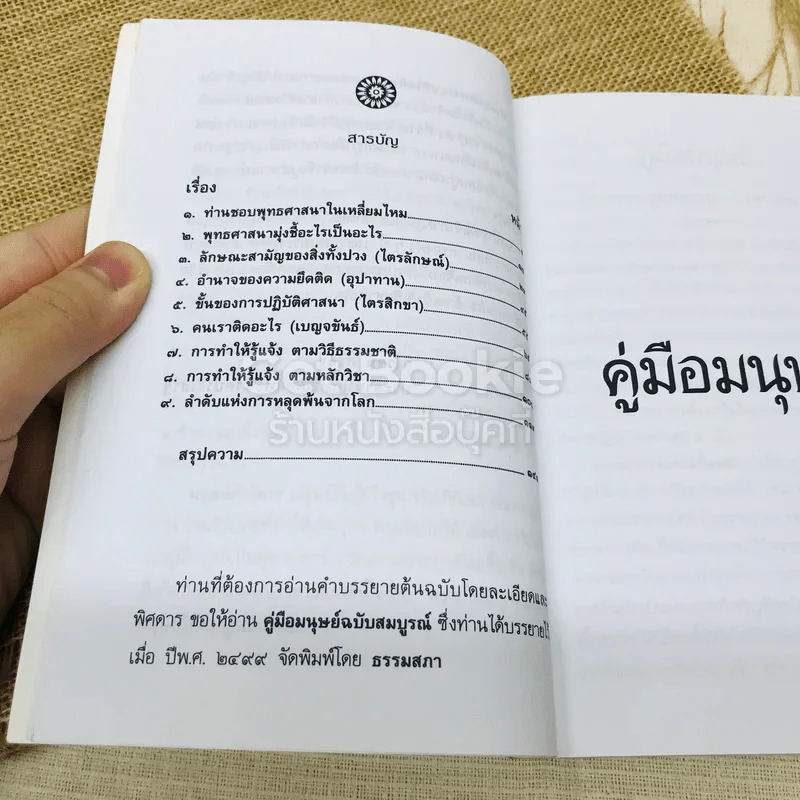 สารบัญ
เรื่อง
๑. ท่านชอบพุทธศาสนาในเหลี่ยมไหน
๒. พุทธศาสนามุ่งชี้อะไรเป็นอะไร
๓. ลักษณะสามัญของสิ่งทั้งปวง (ไตรลักษณ์)
๔. อำนาจของความยึดติด (อุปาทาน)
๕. ขั้นของการปฏิบัติศาสนา (ไตรสิกขา)
๖. คนเราติดอะไร (เบญจขันธ์)
๗. การทำให้รู้แจ้ง ตามวิธีธรรมชาติ
๘. การทำให้รู้แจ้ง ตามหลักวิชา
๙. ลำดับแห่งการหลุดพ้นจากโลก
Bookie
ร้านหนังสือบุ๊คกี้
สรุปความ
ท่านที่ต้องการอ่านคำบรรยายต้นฉบับโดยละเอียดและ
พิศดาร ขอให้อ่าน คู่มือมนุษย์ฉบับสมบูรณ์ ซึ่งท่านได้บรรยายไว้
เมื่อ ปีพ.ศ. ๒๔๙๙ จัดพิมพ์โดย ธรรมสภา
คู่มือมนุษ